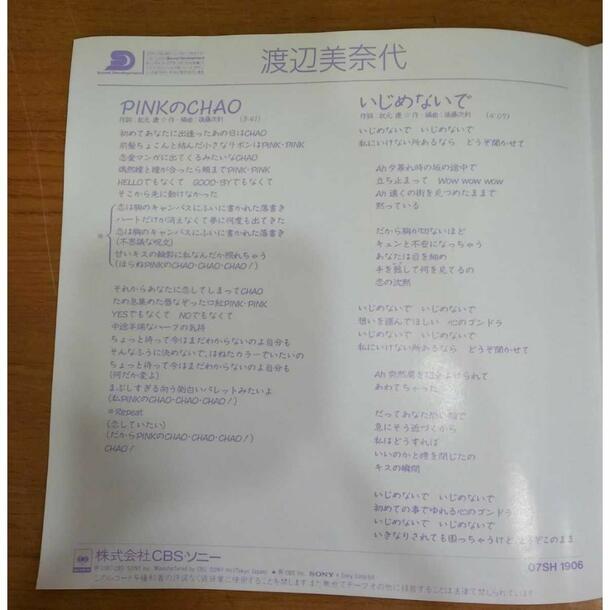 渡辺美奈代
PINKのCHAO
作詞：秋元 康☆作・編曲：後藤次利 (3:41)
初めてあなたに出逢ったあの日はCHAO
前髪ちょこんと結んだ小さなリボンはPINK・PINK
恋愛マンガに出てくるみたいなCHAO
偶然瞳と瞳が合ったら頬までPINK・PINK
HELLOでもなくて GOOD-BYでもなくて
そこから先に動けなかった
恋は胸のキャンバスにふいに書かれた落書き
ハートだけが消えなくて夢に何度も出てきた
恋は胸のキャンバスにふいに書かれた落書き
(不思議な呪文)
甘いキスの輪郭に私なんだか照れちゃう
(ほらねPINKのCHAO・CHAO・CHAO！)
それからあなたに恋してしまってCHAO
ため息集めた唇なぞった口紅PINK・PINK
YESでもなくて NOでもなくて
中途半端なハーフの気持
ちょっと待って今はまだわからないのよ自分も
そんなふうに決めないで、はねたカラーでいたいの
ちょっと待って今はまだわからないのよ自分も
(何だか変よ)
まぶしすぎる向う側白いパレットみたいよ
(私PINKのCHAO・CHAO・CHAO！)
※Repeat
(恋していたい)
(だからPINKのCHAO・CHAO・CHAO！)
CHAO！
いじめないで
作詞：秋元 康☆作・編曲：後藤次利 (4:09)
いじめないで いじめないで
私にいけない所あるなら どうぞ聞かせて
Ah夕暮れ時の坂の途中で
立ち止まって WOW WOW WOW
Ah 遠くの街を見つめたままで
黙っている
だから胸が切ないほど
キュンと不安になっちゃう
あなたは目を細め
手を翳して何を見てるの
恋の沈黙
いじめないで いじめないで
想いを運んでほしい 心のゴンドラ
いじめないで いじめないで
私にいけない所あるなら どうぞ聞かせて
Ah 突然肩を
あわてちゃった
だってあなた
急にそう近づくから
私はどうすれば
いいのかと瞳を閉じたの
キスの瞬間
いじめないで いじめないで
初めての事でゆれる心のゴンドラ
いじめないで いじめないで
いきなりされても困っちゃうけど、どうぞこのまま
株式会社CBSソニー
07SH 1906